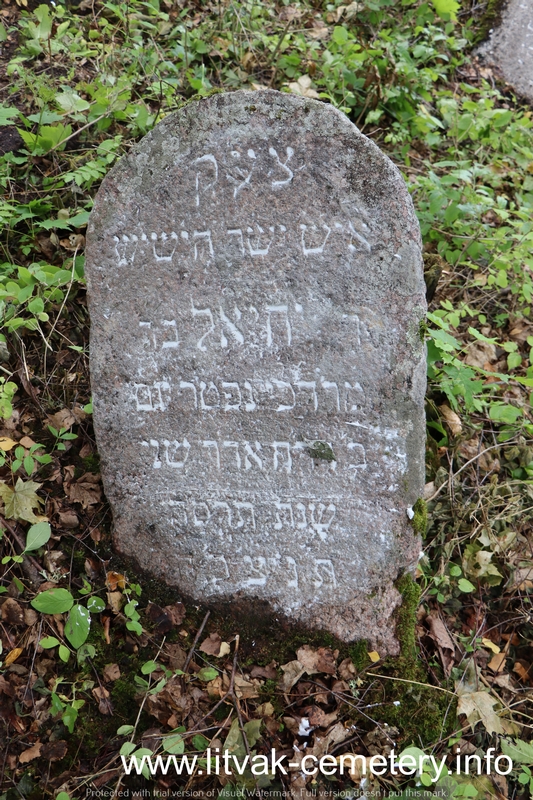 צעק
איש ישר הישיש
ר יחיאל בר
מרדכי נפטר יום
ב אדר שני
שנת
ת נ צ ב
www.litvak-cemetery.info
Protected with trial version of Visual Watermark. Full version doesn't put this mark.